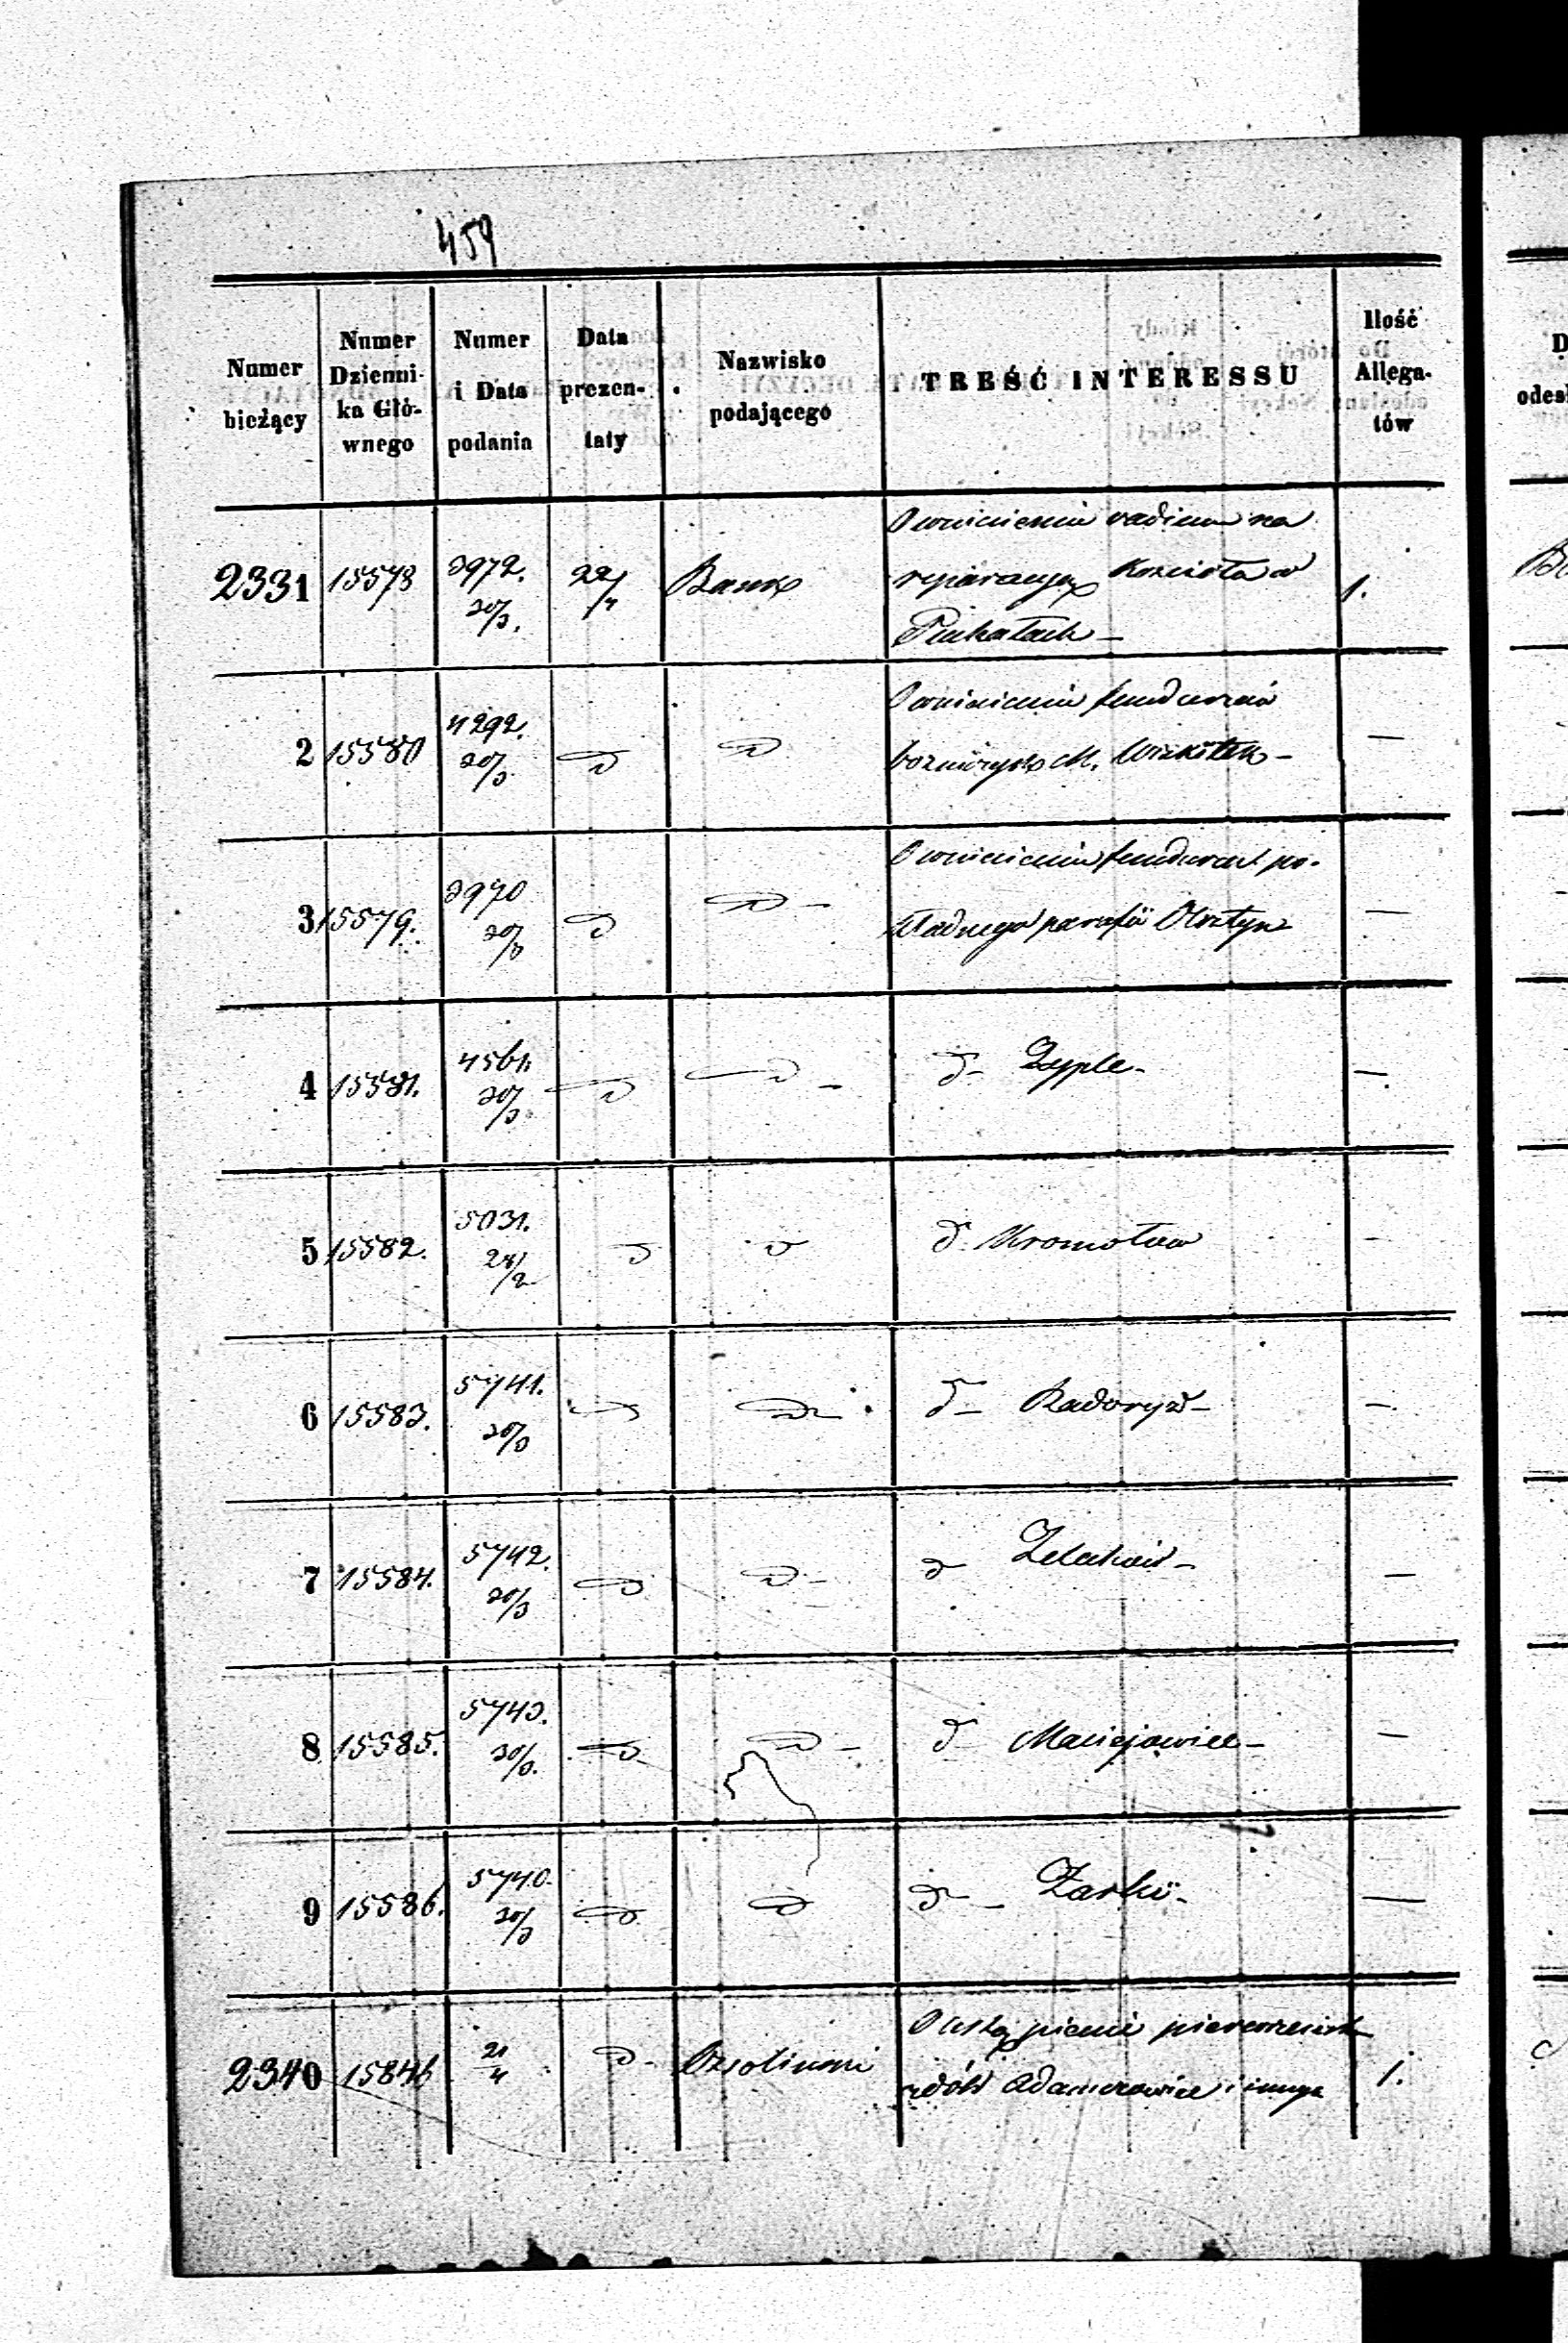 459
Numer bieżący
Numer Dzienni- ka Głó- wnego
Numer i Data podania
Data prezen- taty
Nazwisko podającego
TREŚĆ INTERESSU
Ilość Allega- tów
2331 15578 3972. 20/3. 22/4 Bank
O wniesieniu vadium na
reparacyą Kościoła w
1.
2 15580 4292. 20/3 d d
O wniesieniu funduszów
bożniczych M. —
3 15579. 3970 20/3 d d —
O wniesieniu fundusz po-
kładnego parafii Olsztyn —
4 15581. 4561. 20/3 d d — d — —
5 15582. 5031. 24/2 d d d. Kromołów —
6 15583. 5741. 20/3 d d — d — Radoryż — —
7 15584. 5742. 20/3 d d — d Żelechów — —
8 15585. 5743. 20/3. d d — d Maciejowice — —
9 15586. 5740. 20/3 d d d — Żarki — —
2340 15846 21/4 d — Ossoliński
O ustąpienie pierwszeństwa
dóbr Adamowice i innych
1.